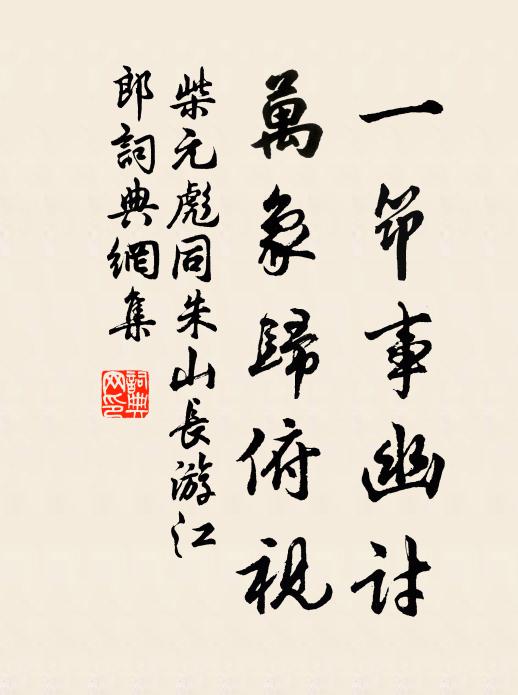 一笻事幽討
萬象歸俯視
柴元彪同朱山長游江
郎詞典網集
詞典網印